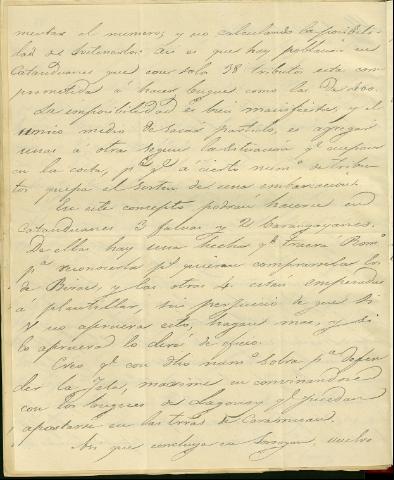 mentar el numero; y no calculando la posibili-
dad de sostenerlos: Asi es que hay poblacion en
Catanduanes que con solo 58 tributos esta com
prometida á hacer buques como las de 600.
La imposibilidad es bien manifiesta, y el
unico medio de sacar partido, es agregar
unas á otras segun la situacion qᵉ ocupan
en la costa, pᵃ qᵉ á cierto numº de tribu-
tos quepa el sosten de una embarcacion.
En este concepto podran hacerse en
Catanduanes 3 faluas y 2 barangayanes.
De ellas hay una hecha qᵉ
pᵃ reconocerla pʳ quieran comprarsela los
de Birac, y las otras 4 estan empezadas
á plantillar, sin perjuicio de que si
V no aprueva esto, hagan mas, y si
lo aprueva lo dirá de oficio.
Creo qᵉ con dho numº sobra pᵃ defen
der la Isla, maxime en convinandose
con los buques de Lagonoy qᵉ puedan
apostarse en las trras de Caramuan.
Asi que concluya en Sorsogon, vuelvo